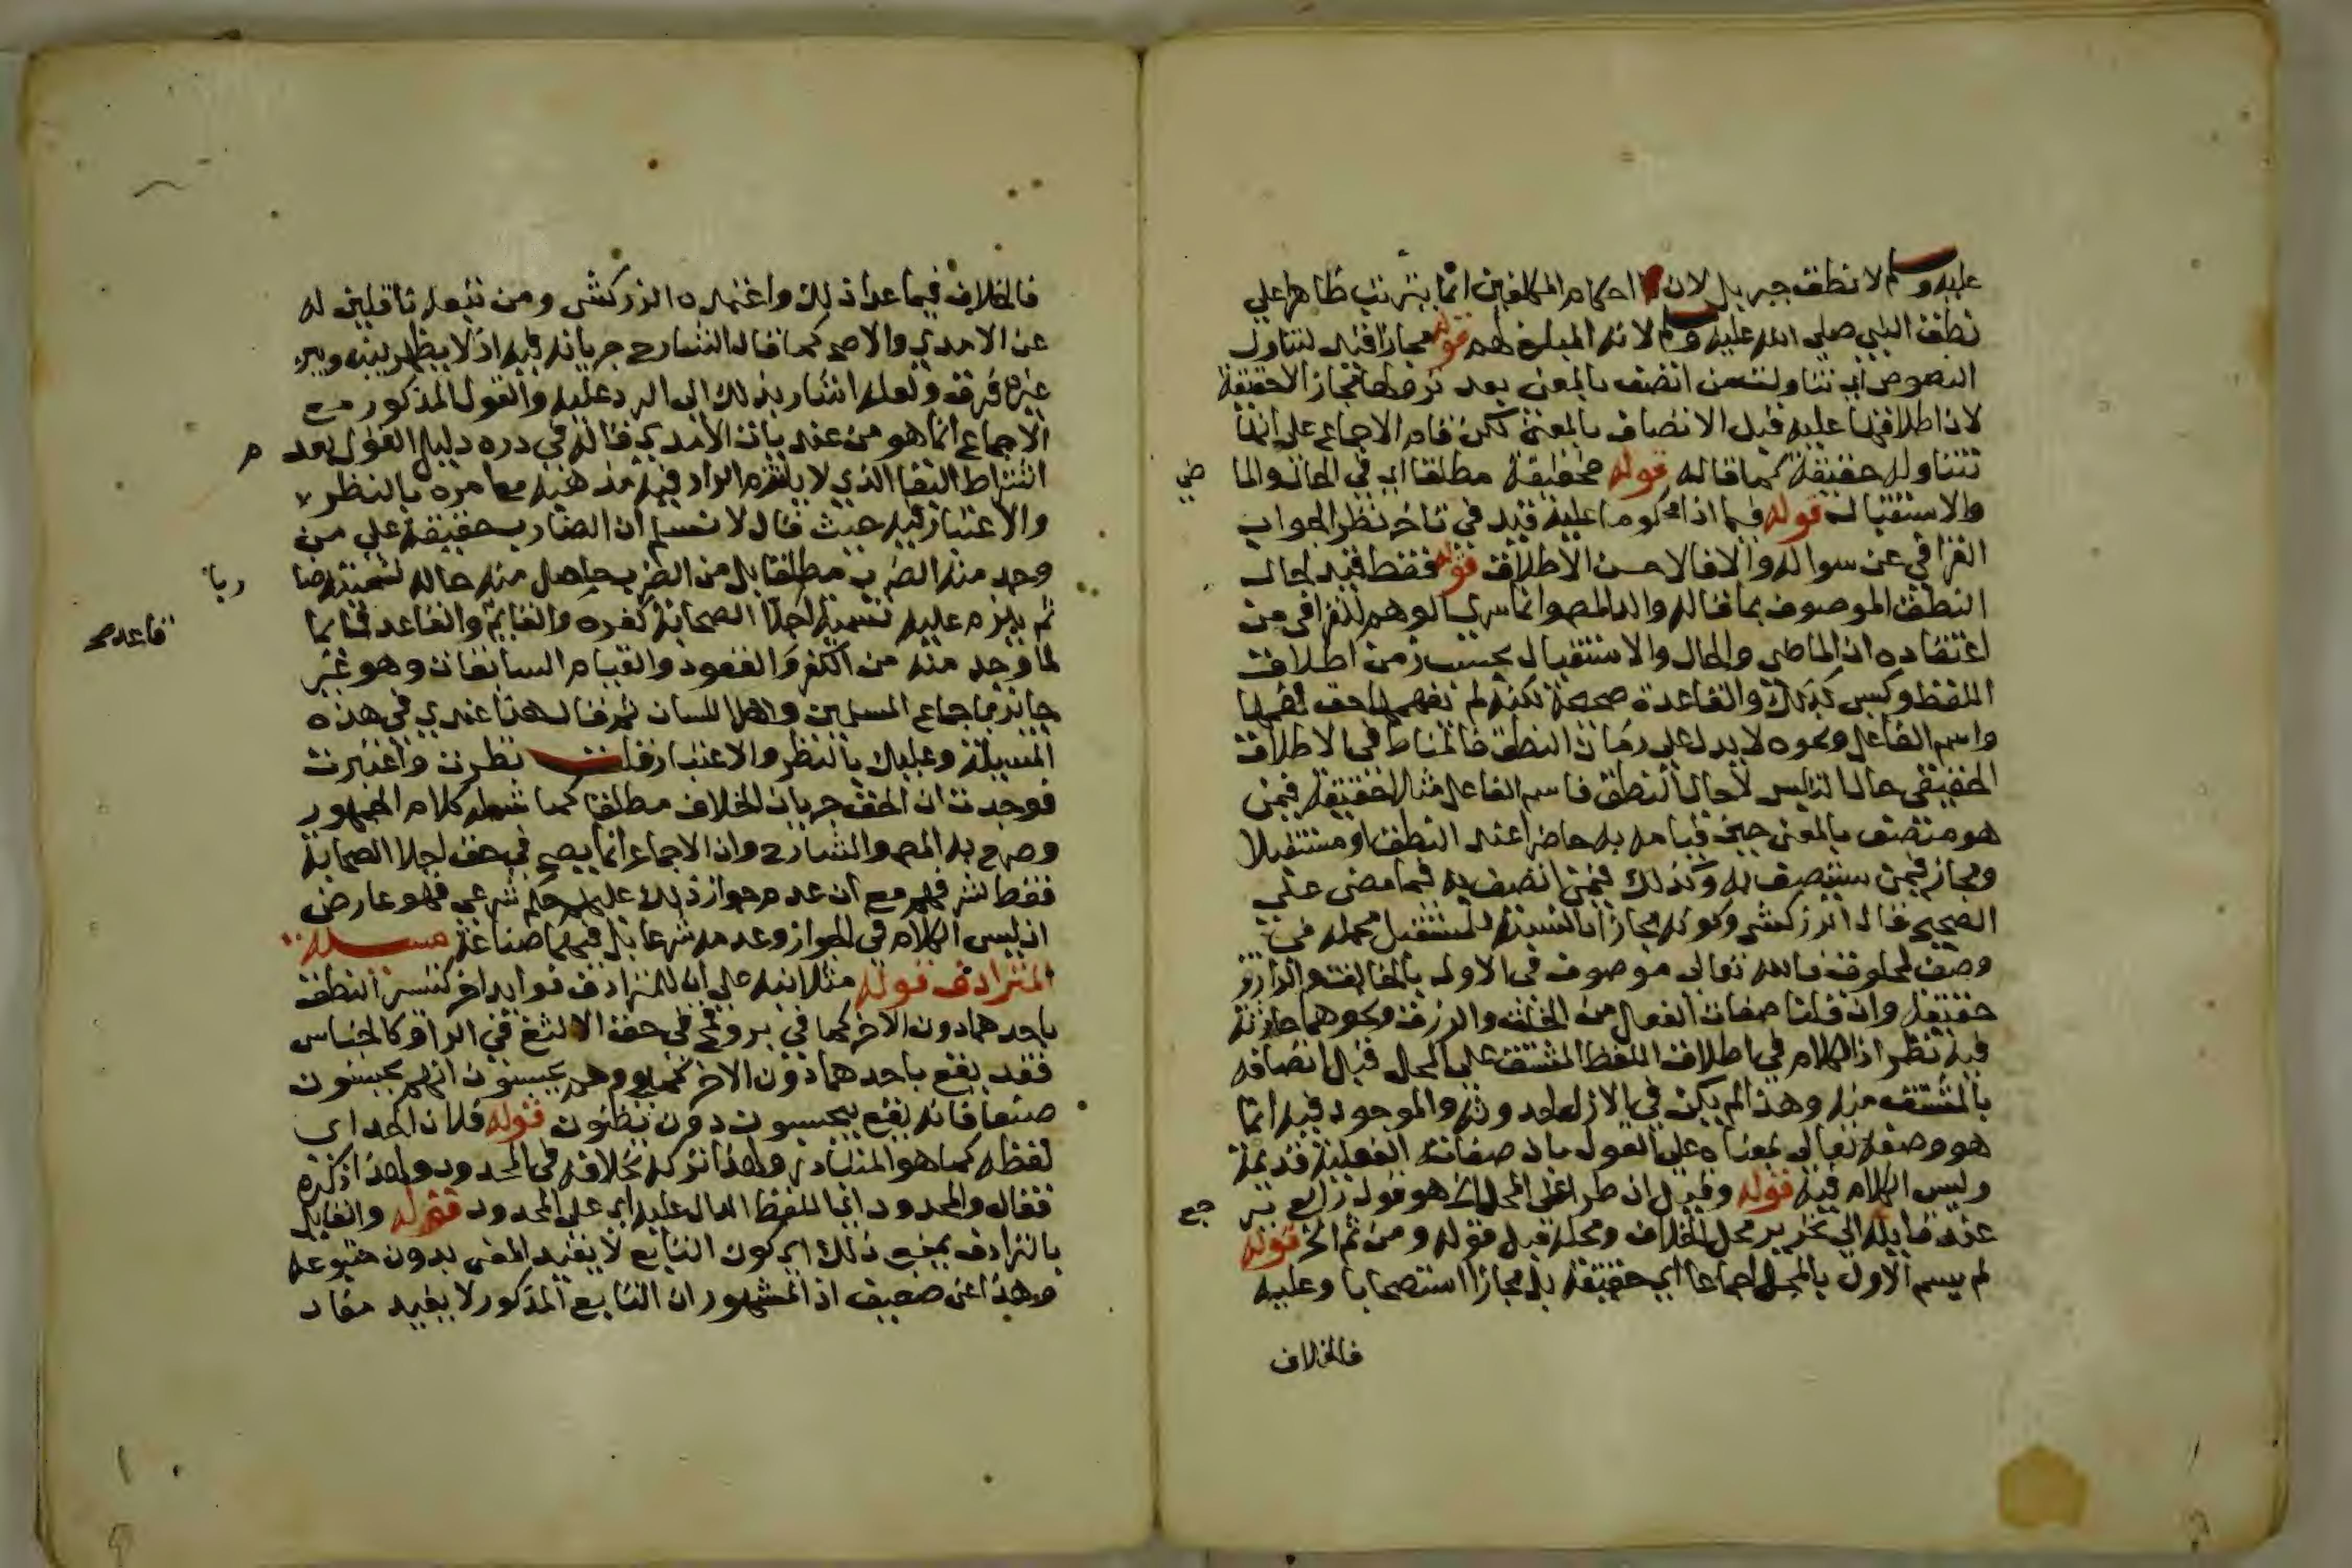 عليه وسلم لا نطق جبريل لان احكام المكلفين انما يترتب ظاهرا على
نطق النبي صلى الله عليه وسلم لانه المبلغ لهم قوله مجازا قيد لتناول
النصوص اي تناولت من اتصف بالمعنى بعد نزولها مجاز الا حقيقة
لان اطلاقها عليه قبل الاتصاف بالمعنى لكن قام الاجماع على انها
تتناوله حقيقة كما قاله قوله حقيقة مطلقا اي في الحال والما
ضي
والاستقبال قوله فيما اذا محكوما عليه قيد في تاخر نظر الجواب
القرافي عن سواله والا فالاحسن الاطلاق قوله فقط قيد لحال
النطق الموصوف بما قاله والد المص وانما سرى الوهم للقرافي من
اعتقاده ان الماضي والحال والاستقبال بحسب زمن اطلاق
اللفظ وليس كذلك والقاعدة صحيحة لكنه لم يفهمها حق فهمها
واسم الفاعل ونحوه لا يدل على زمان النطق فالمناط في الاطلاق
الحقيقي حال التلبس لا حال النطق فاسم الفاعل مثلا حقيقة فيمن
هو متصف بالمعنى حين قيامه به حاضرا عند النطق او مستقبلا
ومجاز فيمن سيتصف به وكذلك فيمن اتصف به فيما مضى على
الصحيح قال الزركشي وكونه مجازا بالنسبة للمستقبل محله في
وصف المخلوق فالله تعالى موصوف في الاول بالخالق والرازق
حقيقة وان قلنا صفات الفعل من الخلق والرزق ونحوهما حادثة
فيه نظر اذ الكلام في اطلاق اللفظ المشتق على المحل قبل اتصافه
بالمشتق منه وهذا لم يكن في الازل لحدوثه والموجود فيه انما
هو وصفه تعالى بمعناه على القول بان صفاته الفعلية قديمة
وليس الكلام فيه قوله وقيل ان طرا على المحل الخ هو قول رابع ير
جع
عنه قايله الى تحرير محل الخلاف ومحله قبل قوله ومن ثم الخ قوله
لم يسم الاول بالمحل اجماعا اي حقيقة بل مجازا استصحابا وعليه
فالخلاف
فالخلاف فيما عدا ذلك واعتمده الزركشي ومن تبعه ناقلين له
عن الامدي والاصح كما قال الشارح جريانه فيه اذ لا يظهر بينه وبين
غيره فرق ولعله اشار بذلك الى الرد عليه والقول المذكور مع
الاجماع انما هو من عنديات الامدي قاله في رده دليل القول بعد
م
اشتراط البقا الذي لا يلتزم الراد فيه مذهبه مع امره بالنظر
والاعتبار فيه حيث قال لا نسلم ان الضارب حقيقة على من
وجد منه الضرب مطلقا بل من الضرب حاصل منه حاله تسميته ضا
ربا
ثم يلزم عليه تسمية اجلا الصحابة كفره والقايم والقاعد قائما
قاعد صح
لما وجد منه من الكفر والقعود والقيام السابقات وهو غير
جايز باجماع المسلمين واهل اللسان ثم قال هذا عندي في هذه
المسيلة وعليك بالنظر والاعتبار قلت نظرت واعتبرت
فوجدت ان الحق جريان الخلاف مطلقا كما شمله كلام الجمهور
وصرح به المص والشارح وان الاجماع انما يصح في حق اجلا الصحابة
فقط لشرفهم مع ان عدم جواز ذلك عليهم حكم شرعي فهو عارض
اذ ليس الكلام في الجواز وعدمه شرعا بل فيهما صناعة مسيلة
المترادف قوله مثلا نبه على انه للمترادف فوايد اخر كتيسر النطق
باحدهما دون الاخر كما في بر وقمح في حق الالثغ في الرا وكالجناس
فقد يقع باحدهما دون الاخر نحو وهم يحسبون انهم يحسنون
صنعا فانه يقع بيحسبون دون يظنون قوله فلان الحد اي
لفظه كما هو المتبادر ولهذا تركه بخلافه في المحدود ولهذا ذكره
فقال والمحدود اي اللفظ الدال عليه اي على المحدود قوله والقايل
بالترادف يمنع ذلك اي كون التابع لا يفيد المعنى بدون متبوعه
وهذا اعن ضعيف اذ المشهور ان التابع المذكور لا يفيد مفاد